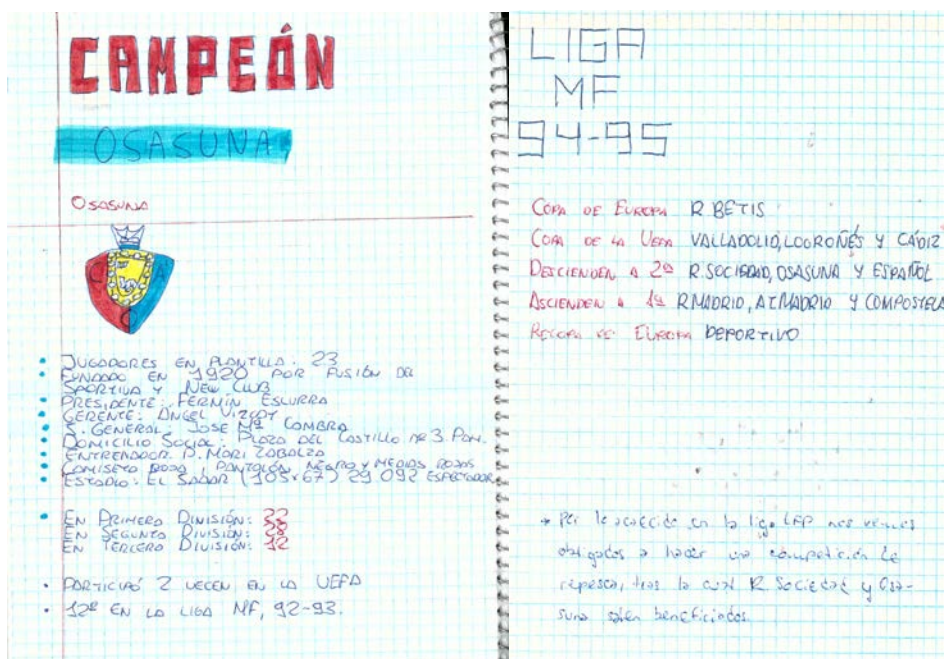 CAMPEÓN
OSASUNA
OSASUNA
JUGADORES EN PLANTILLA. 23
FUNDADO EN 1920 POR FUSIÓN DE
SPORTIVA Y NEW CLUB
PRESIDENTE: FERMÍN ESCURRA
GERENTE: ANGEL VIZCAY
S. GENERAL: JOSE Mª
DOMICILIO SOCIAL: PLAZA DEL CASTILLO Nº 3. PAM.
ENTRENADOR. P. MARI ZABALZA
CAMISETA ROJA, PANTALÓN NEGRO Y MEDIAS ROJAS
ESTADIO: EL SADAR (105x67) 29 092 ESPECTADOR
EN PRIMERA DIVISIÓN:
EN SEGUNDA DIVISIÓN:
EN TERCERA DIVISIÓN: 12
PARTICIPÓ 2 VECEN EN LA UEFA
12º EN LA LIGA MF, 92-93.
LIGA
MF
94-95
COPA DE EUROPA R. BETIS
COPA DE LA UEFA VALLADOLID, LOGROÑÉS Y CÁDIZ
DESCIENDEN A 2ª R. SOCIEDAD, OSASUNA Y ESPAÑOL
ASCIENDEN A 1ª R. MADRID, AT. MADRID Y COMPOSTELA
RECOPA DE EUROPA DEPORTIVO
→ Por lo acaecido en la liga LFP nos vemos
obligados a hacer una competición de
repesca, tras la cual R. Sociedad y Osa-
suna salen beneficiados.